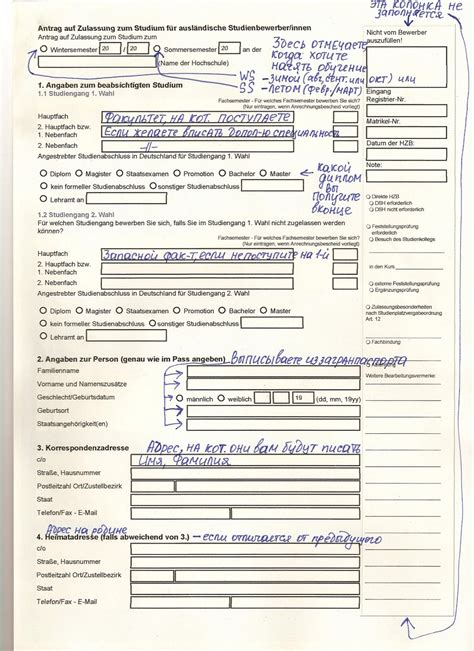 ЭТА КОЛОНКА НЕ
ЗАПОЛНЯЕТСЯ
Antrag auf Zulassung zum Studium für ausländische Studienbewerber/innen
Antrag auf Zulassung zum Studium zum
Wintersemester 20 / 20 Sommersemester 20 an der
(Name der Hochschule)
Здесь отмечаете
когда хотите
начать обучение
WS - зимой (авг, сент. или окт) или
SS - летом (февр/март)
Nicht vom Bewerber
auszufüllen!
Eingang
Registrier-Nr.
Matrikel-Nr.
Datum der HZB:
Note:
1. Angaben zum beabsichtigten Studium
1.1 Studiengang 1. Wahl
Fachsemester - Für welches Fachsemester bewerben Sie sich?
(Nur eintragen, wenn Anrechnungsbescheid vorliegt)
Hauptfach Факультет, на кот. поступаете
2. Hauptfach bzw. Если желаете вписать допол-ю специальность
1. Nebenfach
2. Nebenfach -//-
Angestrebter Studienabschluss in Deutschland für Studiengang 1. Wahl
Diplom Magister Staatsexamen Promotion Bachelor Master
kein formeller Studienabschluss sonstiger Studienabschluss
Lehramt an
какой
диплом
вы
получите
в конце
Direkte HZB
DSH erforderlich
DSH nicht erforderlich
Feststellungsprüfung
erforderlich
Besuch des Studienkollegs
in den Kurs
externe Feststellungsprüfung
Ergänzungsprüfung
Zulassungsbesonderheiten
nach Studienplatzvergabeordnung
Art. 12
1.2 Studiengang 2. Wahl
Für welchen Studiengang bewerben Sie sich, falls Sie im Studiengang 1. Wahl nicht zugelassen werden
können?
Fachsemester - Für welches Fachsemester bewerben Sie sich?
(Nur eintragen, wenn Anrechnungsbescheid vorliegt)
Hauptfach Запасной фак-т, если не поступите на 1-й
2. Hauptfach bzw.
1. Nebenfach
2. Nebenfach
Angestrebter Studienabschluss in Deutschland für Studiengang 2. Wahl
Diplom Magister Staatsexamen Promotion Bachelor Master
kein formeller Studienabschluss sonstiger Studienabschluss
Lehramt an
Weitere Bearbeitungsvermerke:
2. Angaben zur Person (genau wie im Pass angeben) Выписываете из загранпаспорта
Familienname
Vorname und Namenszusätze
Geschlecht/Geburtsdatum männlich weiblich 19 (dd, mm, 19yy)
Geburtsort
Staatsangehörigkeit(en)
3. Korrespondenzadresse Адрес, на кот. они вам будут писать
c/o Имя, Фамилия
Straße, Hausnummer
Postleitzahl Ort/Zustellbezirk
Staat
Telefon/Fax - E-Mail
Адрес на родине
4. Heimatadresse (falls abweichend von 3.) - если отличается от предыдущего
c/o
Straße, Hausnummer
Postleitzahl Ort/Zustellbezirk
Staat
Telefon/Fax - E-Mail